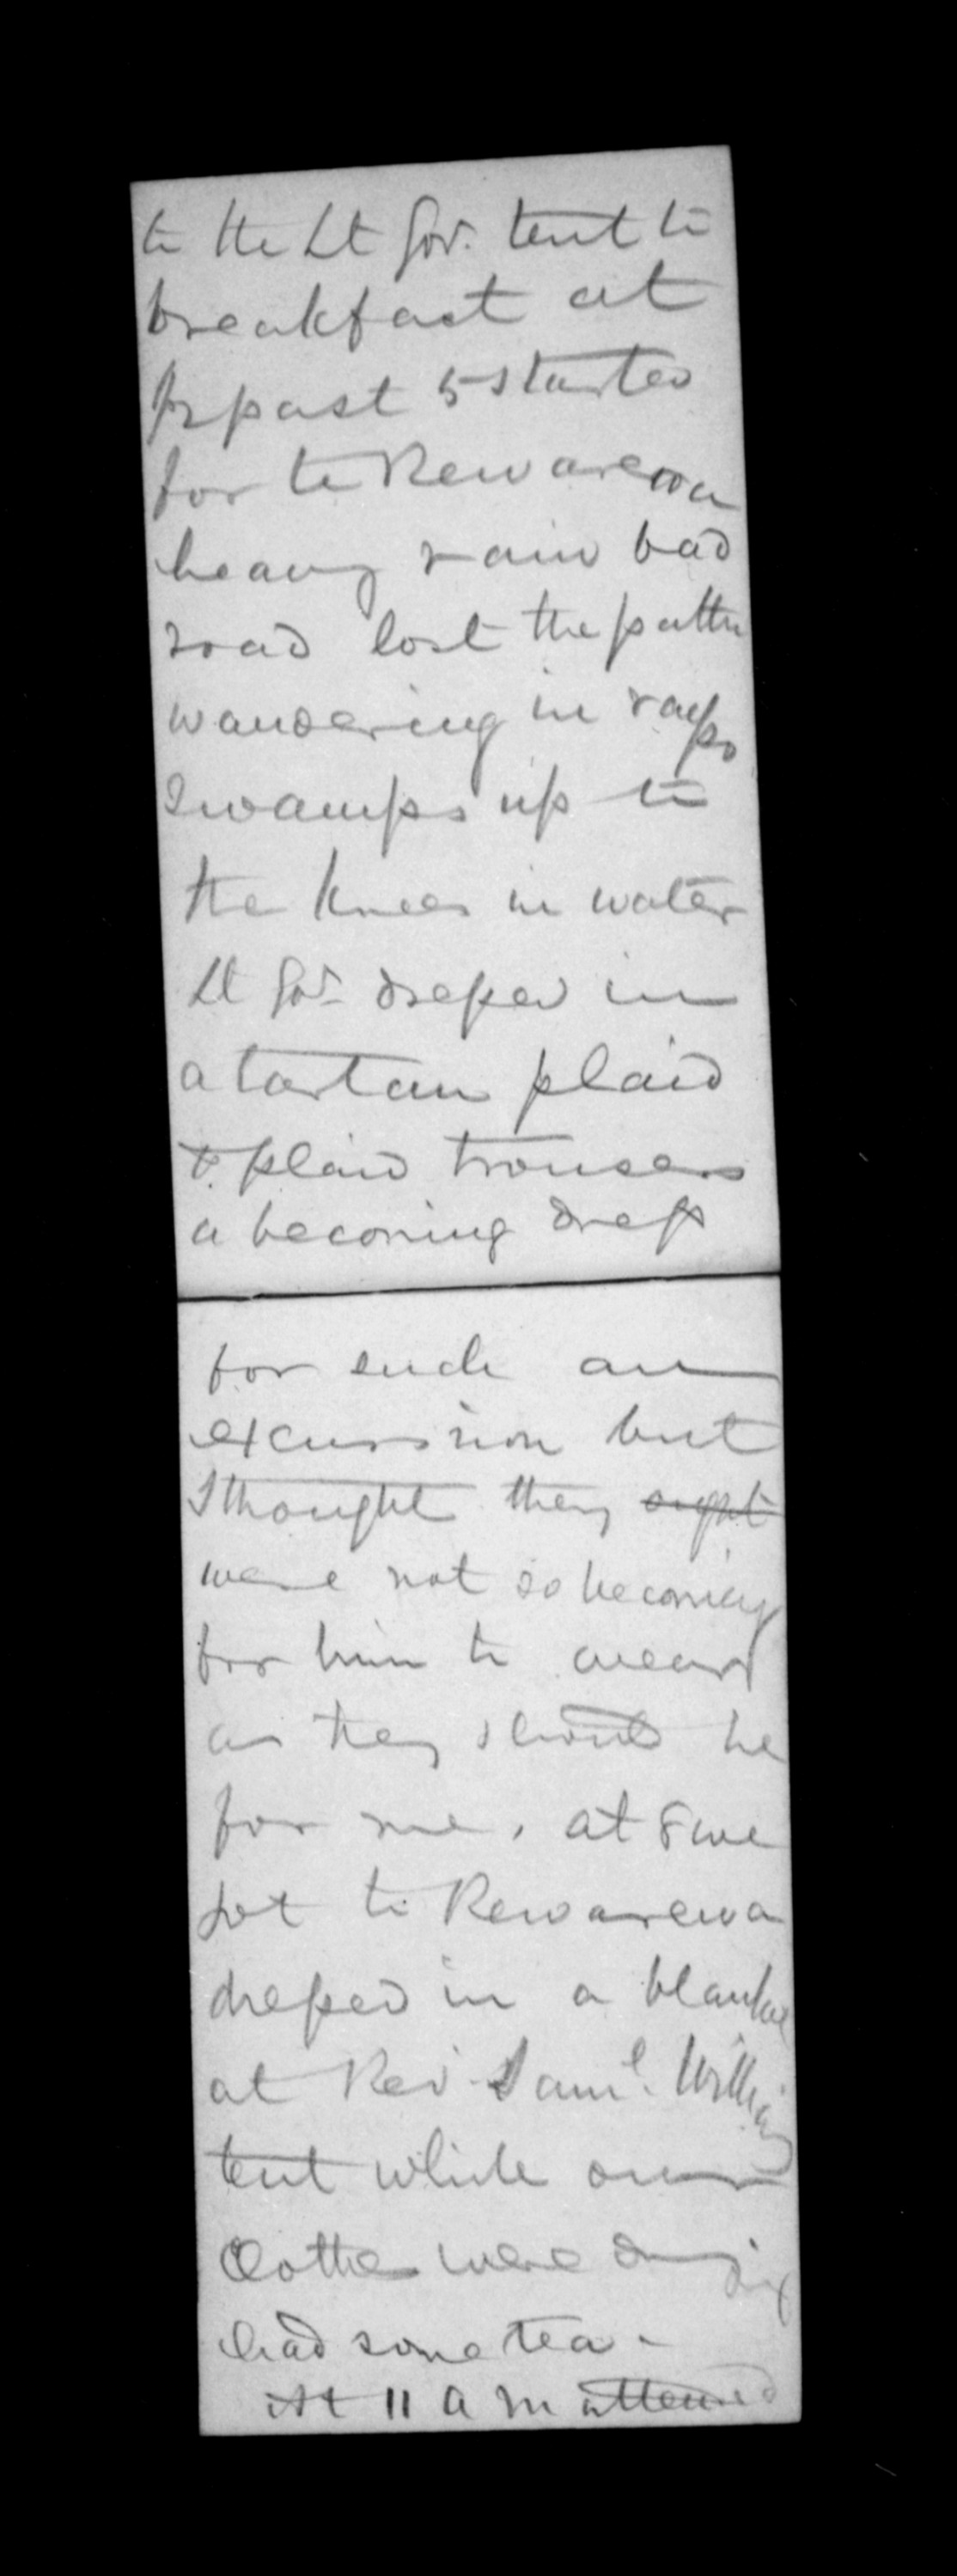 to the Lt Gov. tent to
breakfast at
½ past 5 started
for te Rewarewa
heavy rain bad
road lost the path
wandering in raupo
swamps up to
the knees in water
Lt Gov. dressed in
a tartan plaid
& plaid trousers
a becoming dress
for such an
excursion but
I thought they ought
were not so becoming
for him to wear
as they should be
for me, at 8 we
got to Rewarewa
dressed in a blanket
at Rev. Saml. Williams
tent while our
Clothes were drying
had some tea -
At 11 A M attened